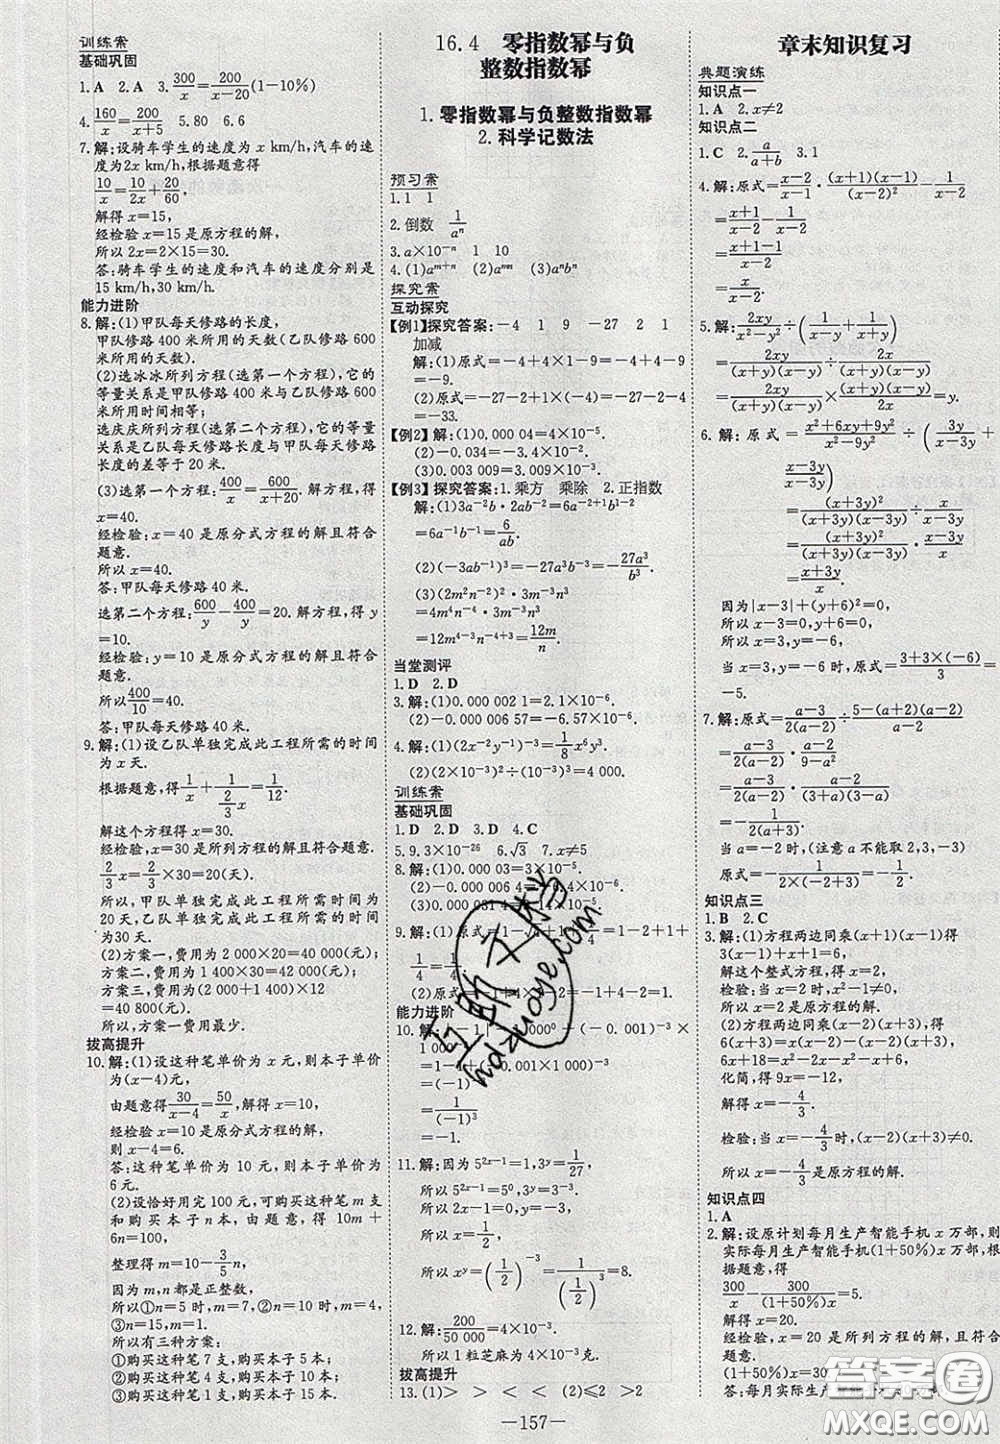 训练案
基础巩固
1. A 2. A 3. 300/x=200/(x-20)(1-10%)
4. 160/x=200/(x+5) 5. 80 6. 6
7. 解:设骑车学生的速度为 x km/h,汽车的速
度为2x km/h,根据题意得
10/x=10/2x+20/60.
解得 x=15,
经检验 x=15 是原方程的解,
所以 2x=2×15=30.
答:骑车学生的速度和汽车的速度分别是
15 km/h,30 km/h.
能力进阶
8. 解:(1)甲队每天修路的长度,
甲队修路 400 米所用的天数(乙队修路 600
米所用的天数).
(2)选冰冰所列方程(选第一个方程),它的
等量关系是甲队修路 400 米与乙队修路 600
米所用时间相等;
选庆庆所列方程(选第二个方程),它的等量
关系是乙队每天修路长度与甲队每天修路
长度的差等于 20 米.
(3)选第一个方程:400/x=600/(x+20). 解方程,得
x=40.
经检验:x=40 是原分式方程的解且符合
题意.
所以 x=40.
答:甲队每天修路 40 米.
选第二个方程:600/y-400/y=20. 解方程,得 y
=10.
经检验:y=10 是原分式方程的解且符合
题意.
所以400/10=40.
答:甲队每天修路 40 米.
9. 解:(1)设乙队单独完成此工程所需的时间
为 x 天.
根据题意,得1/x+1/(2/3 x)=1/12.
解这个方程得 x=30.
经检验,x=30 是所列方程的解且符合题意.
2/3 x=2/3×30=20.
所以,甲队单独完成此工程所需时间为
20 天,乙队单独完成此工程所需的时间
为30 天.
(2)方案一,费用为 2 000×20=40 000(元)
方案二,费用为 1 400×30=42 000(元)
方案三,费用为(2 000+1 400)×12=
40 800(元),
所以,方案一费用最少.
拔高提升
10. 解:(1)设这种笔单价为 x 元,则本子单价为
(x-4)元,
由题意得30/(x-4)=50/x,解得 x=10,
经检验 x=10 是原分式方程的解,
则 x-4=6.
答:这种笔单价为 10 元,则本子单价为
6 元.
(2)设恰好用完 100 元,可购买这种笔 m 支
和购买本子 n 本,由题意,得 10m+
6n=100,
整理得 m=10-3/5 n,
因为 m,n 都是正整数,
所以①n=5 时,m=7,②n=10 时,m=4,
③n=15,m=1.
所以有三种方案:
①购买这种笔 7 支,购买本子 5 本;
②购买这种笔 4 支,购买本子 10 本;
③购买这种笔 1 支,购买本子 15 本.
16.4 零指数幂与负
整数指数幂
1. 零指数幂与负整数指数幂
2. 科学记数法
预习案
1. 1 1
2. 倒数 1/aⁿ
3. a×10⁻ⁿ 1 10
4. (1)aᵐ⁺ⁿ (2)aᵐⁿ (3)aⁿbⁿ
探究案
互动探究
【例1】探究答案:-4 1 9 -27 2 1
加减
解:(1)原式=-4+4×1-9=-4+4-9
=-9.
(2)原式=-27-2+1×(-4)=-27-2-4=
-33.
【例2】解:(1)0.000 04=4×10⁻⁵.
(2)-0.034=-3.4×10⁻².
(3)0.003 009=3.009×10⁻³.
【例3】探究答案:1. 乘方 乘除 2. 正指数
解:(1)3a⁻²b·2ab⁻²=6a⁻²⁺¹b¹⁻²
=6a⁻¹b⁻¹=6/ab.
(2)(-3ab⁻¹)³=-27a³b⁻³=-27a³/b³.
(3)(2m²n⁻²)²·3m⁻³n³
=4m⁴n⁻⁴·3m⁻³n³
=12m⁴⁻³n⁻⁴⁺³=12m/n.
当堂测评
1. D 2. D
3. 解:(1)0.000 002 1=2.1×10⁻⁶.
(2)-0.000 006 57=-6.57×10⁻⁶.
4. 解:(1)(2x⁻²y⁻¹)⁻³=1/8 x⁶y³.
(2)(2×10⁻³)²÷(10⁻³)³=4 000.
训练案
基础巩固
1. D 2. D 3. D 4. C
5. 9.3×10⁻²⁶ 6. √3 7. x≠5
8. 解:(1)0.000 03=3×10⁻⁵.
(2)-0.000 006 4=-6.4×10⁻⁶.
(3)0.000 031 4=3.14×10⁻⁵.
9. 解:(1)原式=1-√4+1+1/4=1-2+1+
1/4=1/4.
(2)原式=-1-2+2=-1-4+2=1.
能力进阶
10. 解:
=(-1)⁻³
=1/(-1)³
=-1.
11. 解:因为 5²ˣ⁻¹=1,3ʸ=1/27,
所以 5²ˣ⁻¹=5⁰,3ʸ=3⁻³,
所以 2x-1=0,y=-3,
所以 x=1/2,
所以 xʸ=(1/2)⁻³=1/(1/2)³=8.
12. 解:200/50 000=4×10⁻³.
所以 1 粒芝麻为 4×10⁻³克.
拔高提升
13. (1)> > < < (2)≤2 >2
章末知识复习
典题演练
知识点一
1. A 2. x≠2
知识点二
1. C 2. a/(a+b) 3. 1
4. 解:原式=(x-2)/(x-1)·(x+1)(x-1)/(x-2)²-1/(x-2)
=(x+1)/(x-2)-1/(x-2)
=(x+1-1)/(x-2)
=x/(x-2).
5. 解:2xy/(x²-y²)÷(1/(x-y)+1/(x+y))
=2xy/((x+y)(x-y))÷2x/((x+y)(x-y))
=2xy/((x+y)(x-y))×(x+y)(x-y)/2x=y.
6. 解:原式=(x²+6xy+9y²)/(x²-9y²)÷(x/(x-3y)+
3y/(x-3y))
=(x+3y)²/((x+3y)(x-3y))÷(x+3y)/(x-3y)
=(x+3y)²/((x+3y)(x-3y))·(x-3y)/(x+3y)
因为|x-3|+(y+6)²=0,
所以 x-3=0,y+6=0,
所以 x=3,y=-6,
当 x=3,y=-6 时,原式=(3+3×(-6))/3=
-5.
7. 解:原式=(a-3)/(2(a-2))÷(5-(a+2)(a-2))/(a-2)
=(a-3)/(2(a-2))·(a-2)/(9-a²)
=(a-3)/(2(a-2))·(a-2)/((3+a)(3-a))
=-1/(2(a+3)).
当 a=-2时,(注意 a 不能取2,3,-3)
原式=-1/(2×(-2+3))=-1/2.
知识点三
1. B 2. C
3. 解:(1)方程两边同乘(x+1)(x-1)得
3(x-1)+x+1=6,
解这个整式方程,得 x=2,
检验:当 x=2 时,(x+1)(x-1)≠0,
所以 x=2 是原方程的解.
(2)方程两边同乘 x(x-2),得
6(x+3)=x(x-2)-(x-2)(x-3)
6x+18=x²-2x-x²+5x-6
化简,得 9x=-12,
解得 x=-4/3.
检验:当 x=-4/3时,(x-2)(x-3)≠0.
所以 x=-4/3是原方程的解.
知识点四
1. A
2. 解:设原计划每月生产智能手机 x 万部,则
实际每月生产智能手机(1+50%)x 万部,根
据题意,得
300/x-300/((1+50%)x)=5.
解得 x=20.
经检验,x=20 是原方程的解,且符合
题意.
(1+50%)x=30
答:每月实际生产智能
—157—
答案圈
MXQE.COM
hdzuoye.com